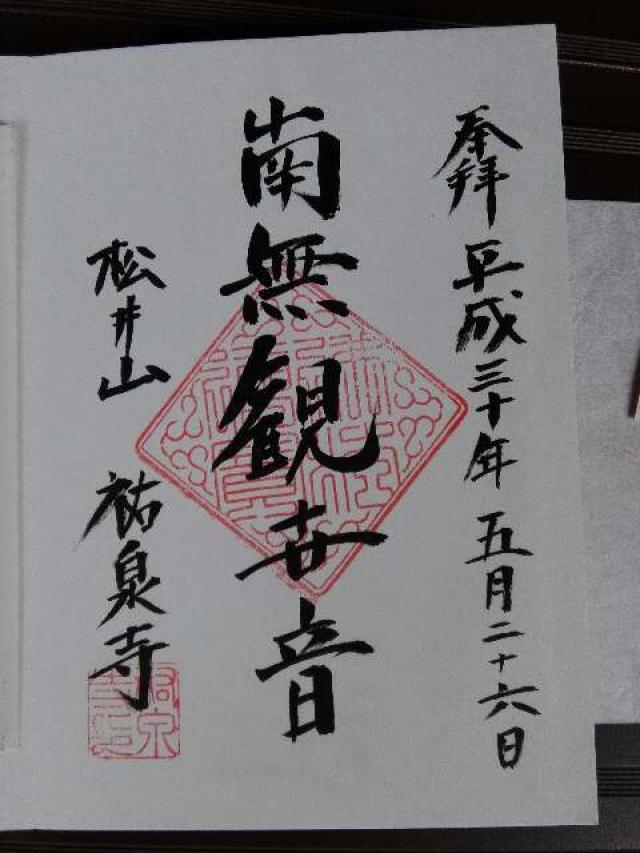 奉拝 平成三十年 五月二十六日
南無観世音
松井山 祐泉寺